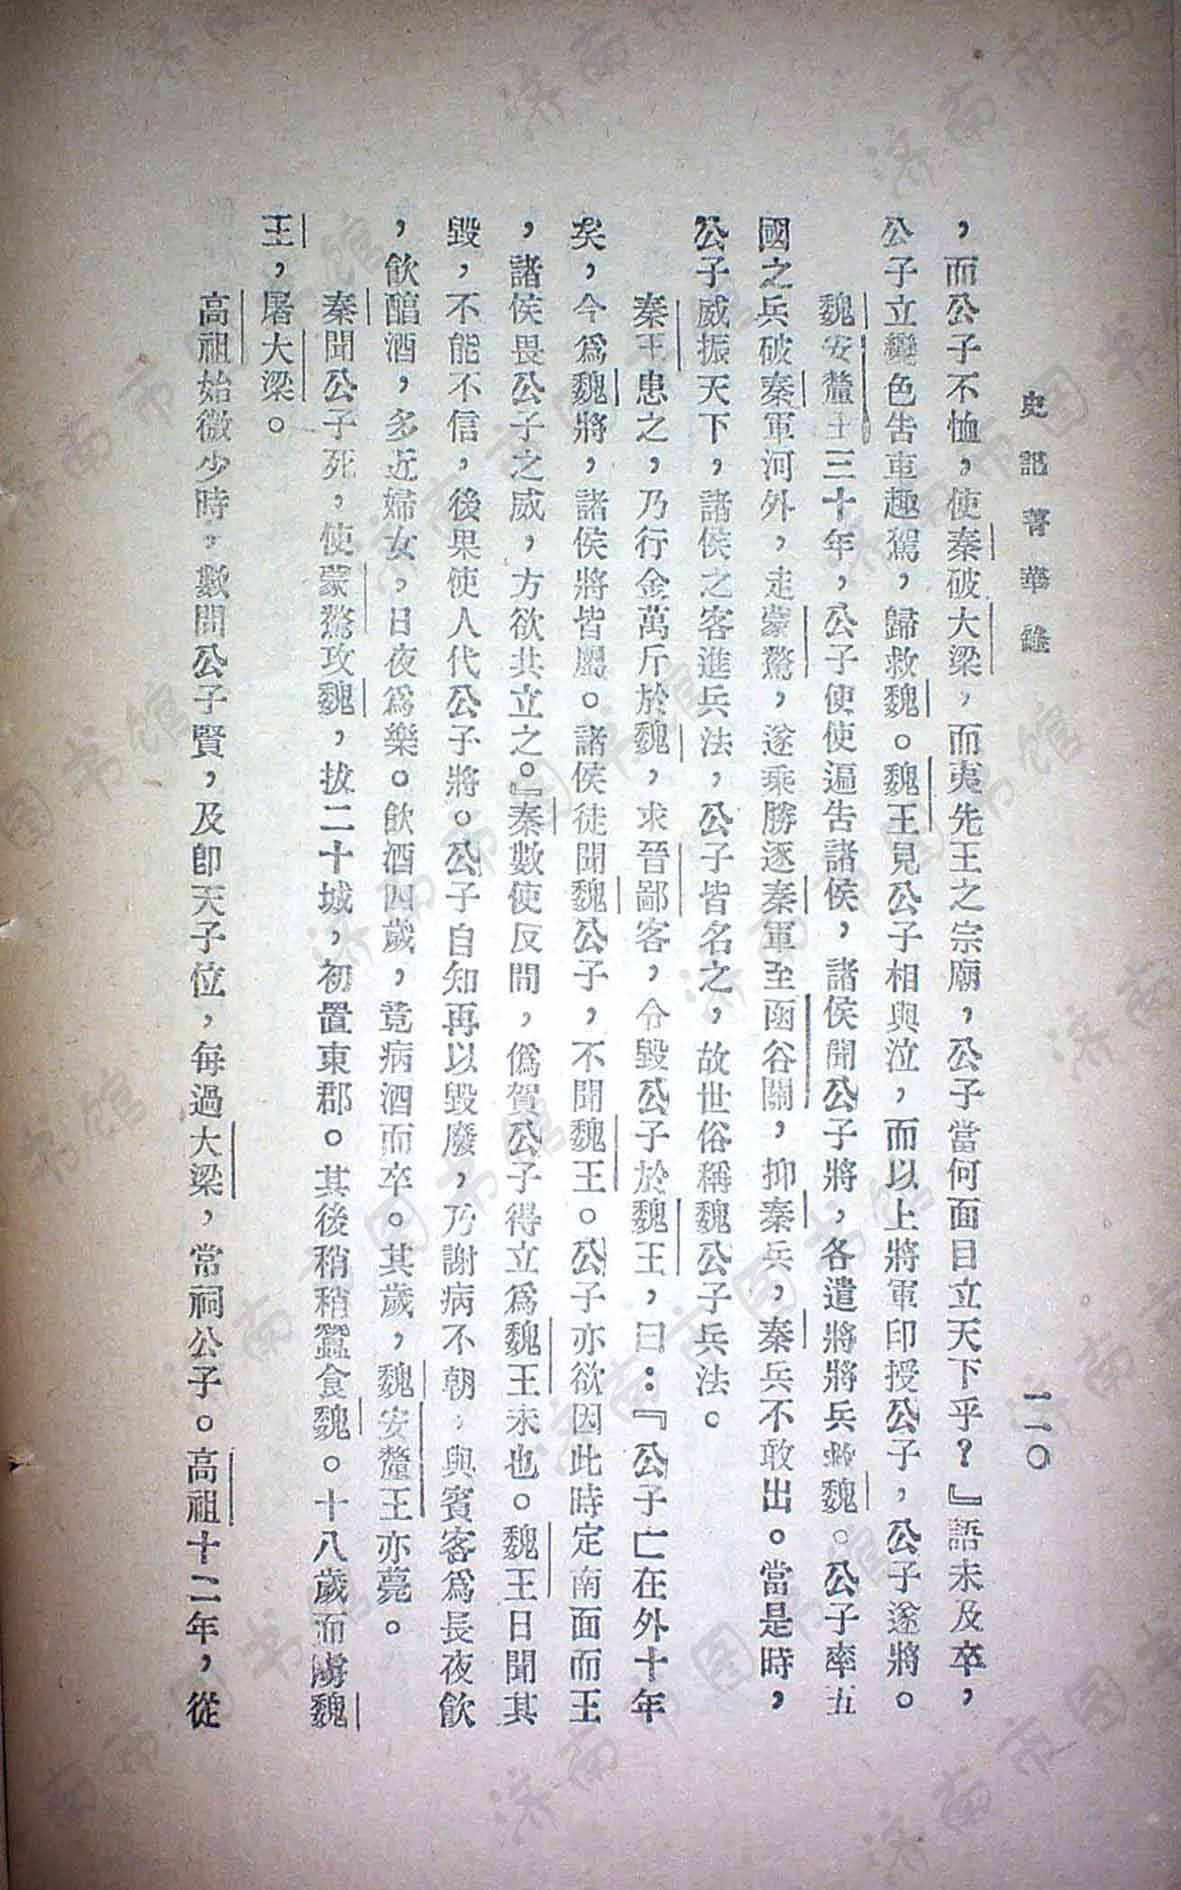 史記菁華錄
一一〇
，而公子不恤，使秦破大梁，而夷先王之宗廟，公子當何面目立天下乎？』語未及卒，
公子立變色告車趣駕，歸救魏。魏王見公子相與泣，而以上將軍印授公子，公子遂將。
魏安釐王三十年，公子使使遍告諸侯，諸侯聞公子將，各遣將將兵救魏。公子率五
國之兵破秦軍河外，走蒙驁，遂乘勝逐秦軍至函谷關，抑秦兵，秦兵不敢出。當是時，
公子威振天下，諸侯之客進兵法，公子皆名之，故世俗稱魏公子兵法。
秦王患之，乃行金萬斤於魏，求晉鄙客，令毀公子於魏王，曰：『公子亡在外十年
矣，今爲魏將，諸侯將皆屬。諸侯徒聞魏公子，不聞魏王。公子亦欲因此時定南面而王
，諸侯畏公子之威，方欲共立之。』秦數使反間，僞賀公子得立爲魏王未也。魏王日聞其
毀，不能不信，後果使人代公子將。公子自知再以毀廢，乃謝病不朝，與賓客爲長夜飲
，飲醇酒，多近婦女，日夜爲樂。飲酒四歲，竟病酒而卒。其歲，魏安釐王亦薨。
秦聞公子死，使蒙驁攻魏，拔二十城，初置東郡。其後稍稍蠶食魏。十八歲而虜魏
王，屠大梁。
高祖始微少時，數聞公子賢，及卽天子位，每過大梁，常祠公子。高祖十二年，從
济南市图书馆